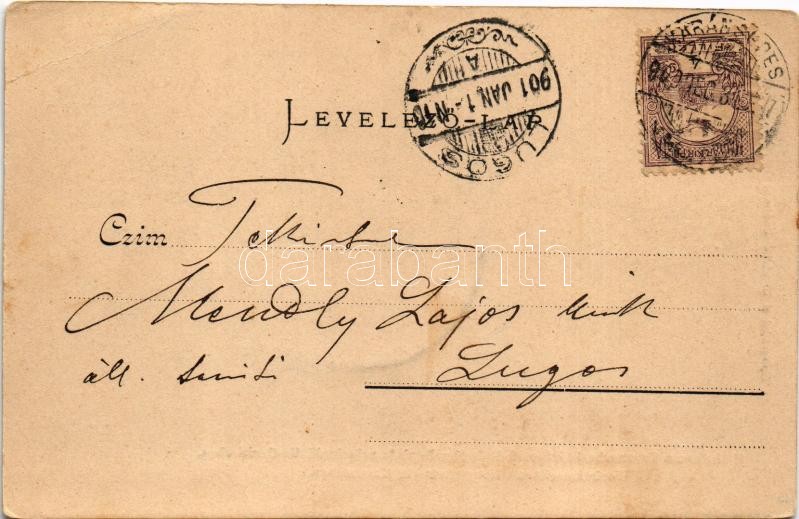 LEVELEZŐ-LAP
LUGOS
901 JAN. 1
A
Czim Tekintetes
Mendly Lajos úrnak
áll. tanító Lugos
darabanth